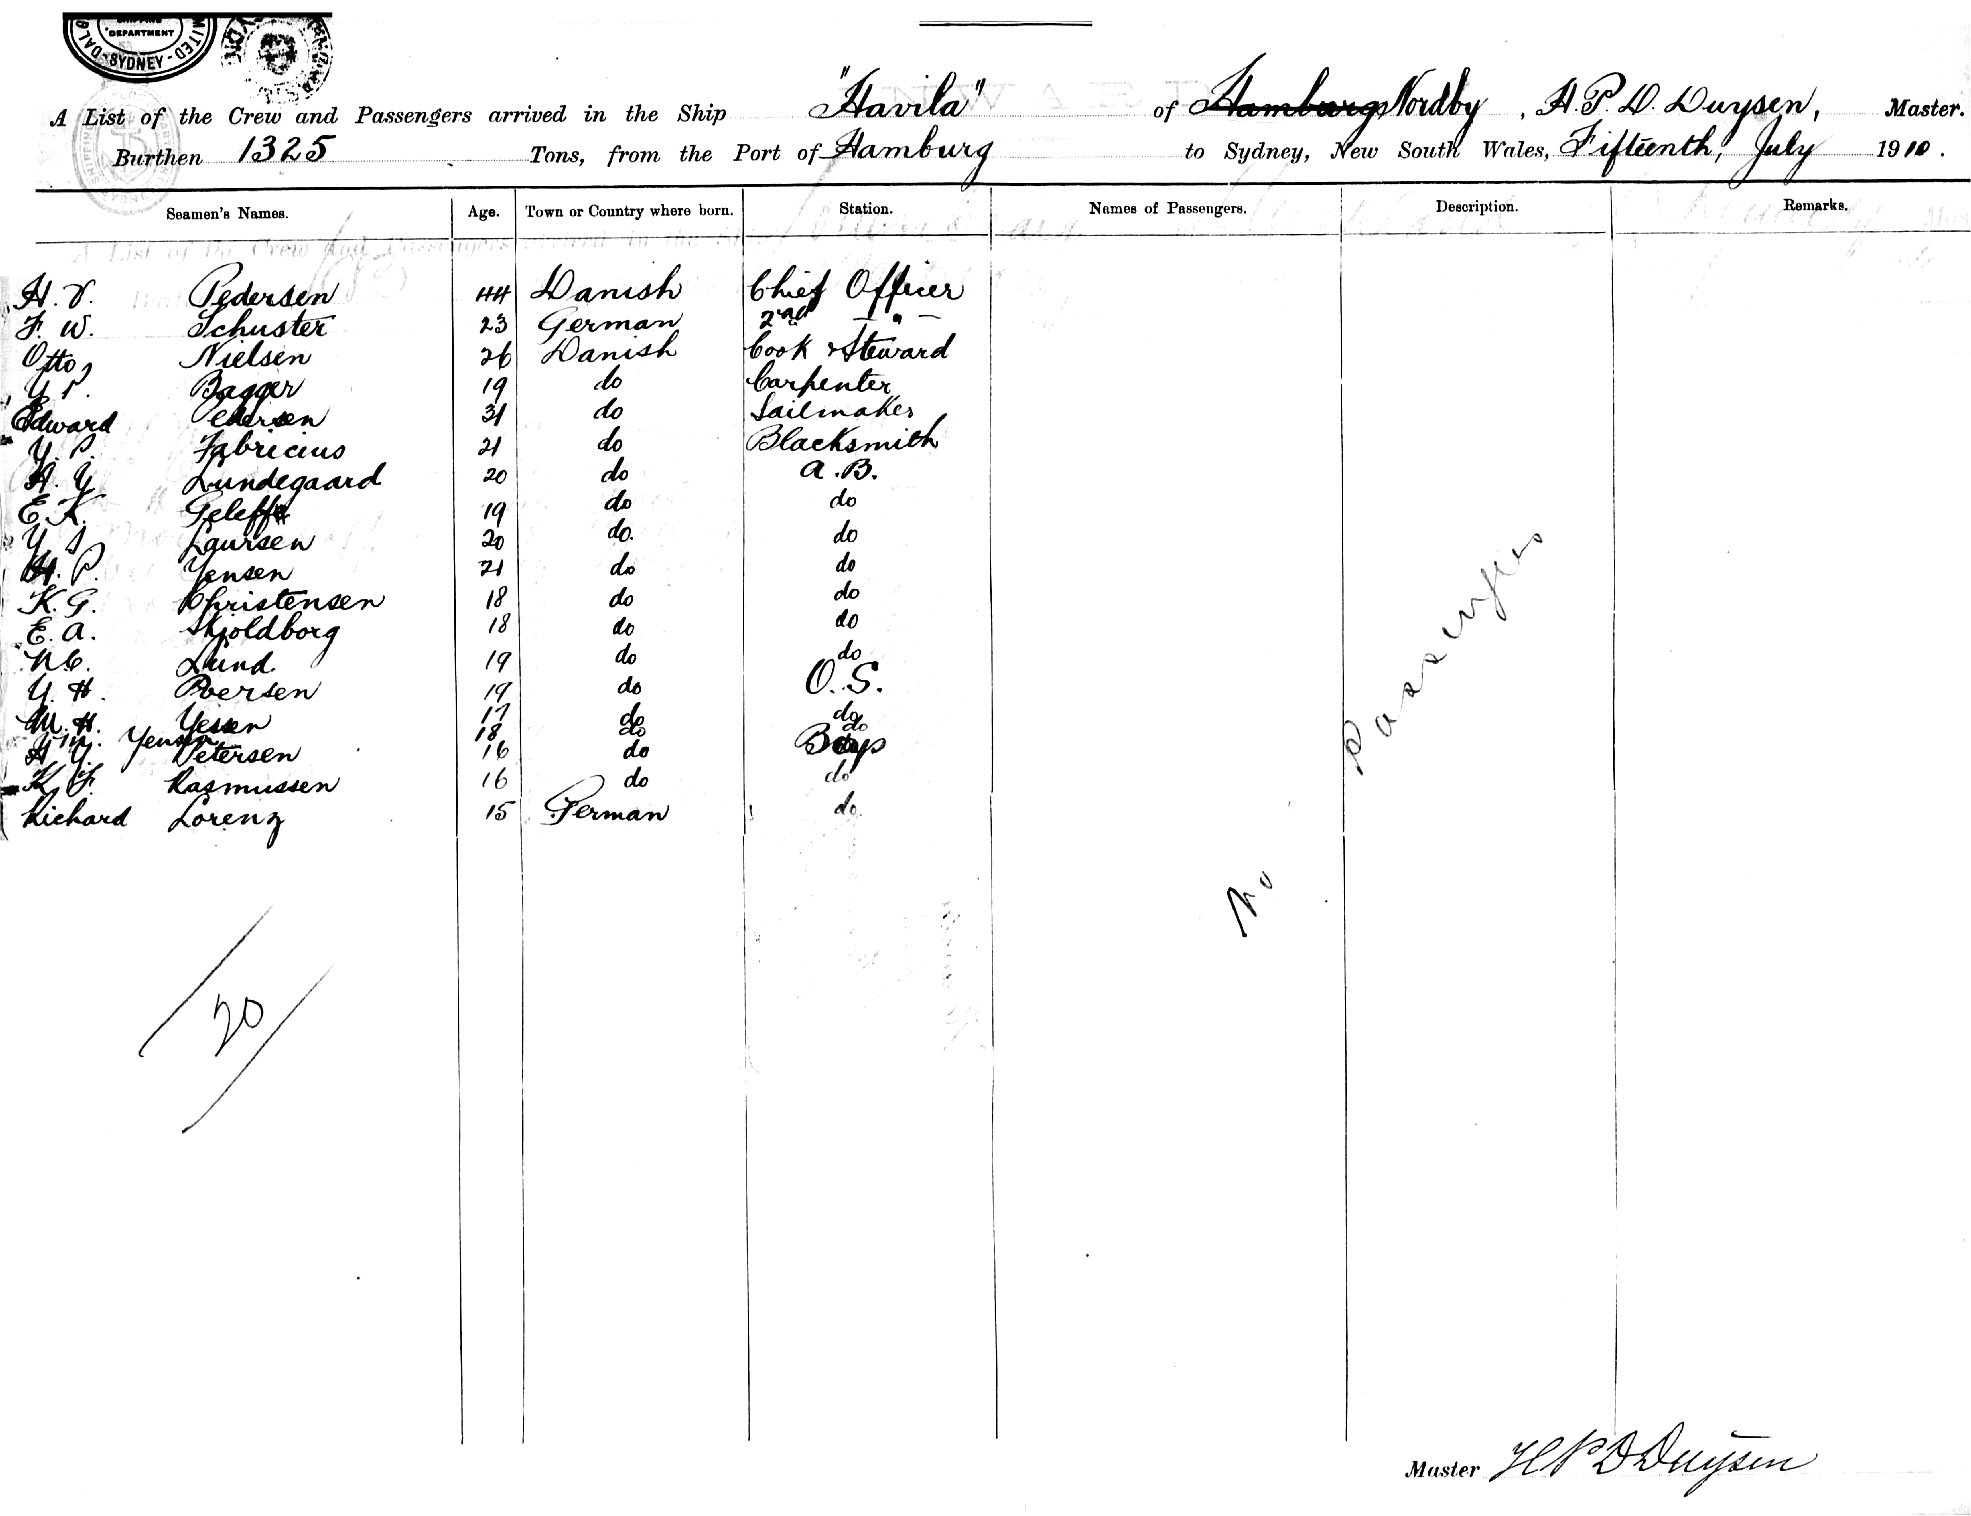 SHIPPING
DEPARTMENT
SYDNEY
A List of the Crew and Passengers arrived in the Ship "Havila" of Hamburg Nordby, H. P. D. Duysen, Master.
Burthen 1325 Tons, from the Port of Hamburg to Sydney, New South Wales, Fifteenth, July 1910.
Seamen's Names. Age. Town or Country where born. Station. Names of Passengers. Description. Remarks.
H. V. Pedersen 44 Danish Chief Officer
F. W. Schuster 23 German 2nd — " —
Otto, Nielsen 26 Danish Cook & Steward
Y. P. Bagger 19 do Carpenter
Edward Pedersen 31 do Sailmaker
Y. P. Fabricius 21 do Blacksmith
A. Y. Lundegaard 20 do A.B.
E. K. Geleff 19 do do
Y. Laursen 20 do. do
H. P. Yensen 21 do do
K. G. Christensen 18 do do
E. A. Skjoldborg 18 do do
N. C. Lund 19 do do
Y. H. Poersen 19 do O. S.
M. H. Yessen 17 do do
Y. M. Yensen 18 do do
A. Y. Petersen 16 do Boys
K. F. Rasmussen 16 do do
Richard Lorenz 15 German do.
No Passengers
20
Master H P D Duysen